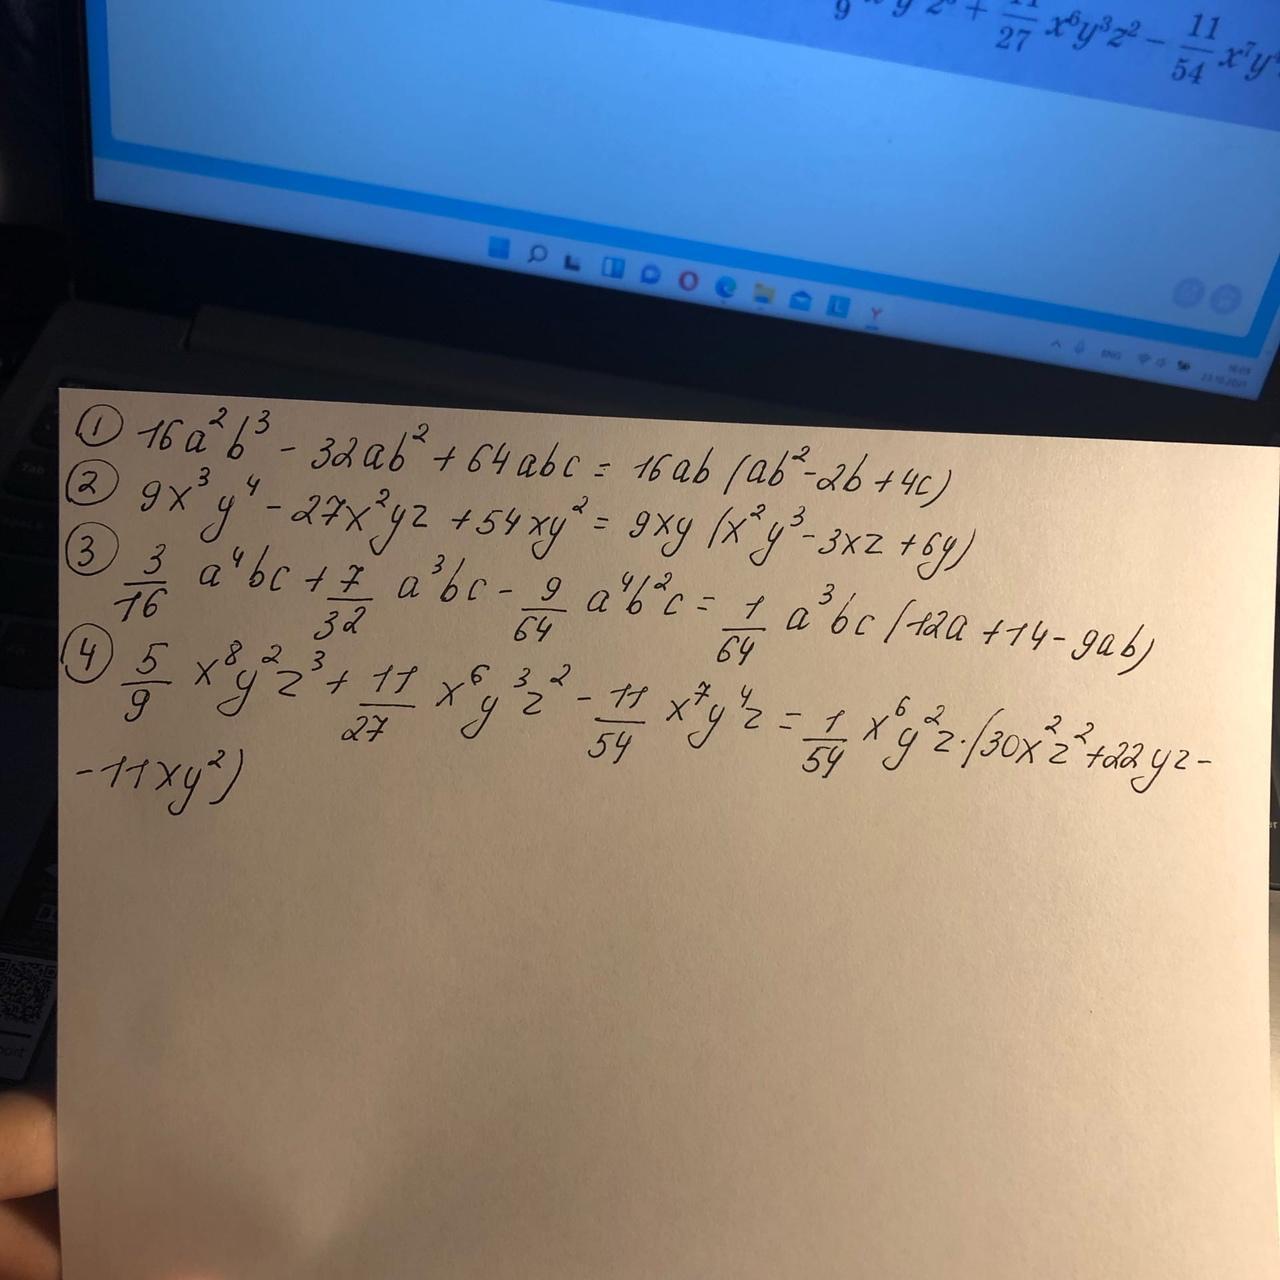 9 y z + 11/27 x⁶y³z² - 11/54 x⁷y
ENG
16:09
23.10.2021
① 16a²b³ - 32ab² + 64abc = 16ab (ab² - 2b + 4c)
② 9x³y⁴ - 27x²yz + 54xy² = 9xy (x²y³ - 3xz + 6y)
③ 3/16 a⁴bc + 7/32 a³bc - 9/64 a⁴b²c = 1/64 a³bc (12a + 14 - 9ab)
④ 5/9 x⁸y²z³ + 11/27 x⁶y³z² - 11/54 x⁷y⁴z = 1/54 x⁶y²z · (30x²z² + 22yz -
- 11xy²)